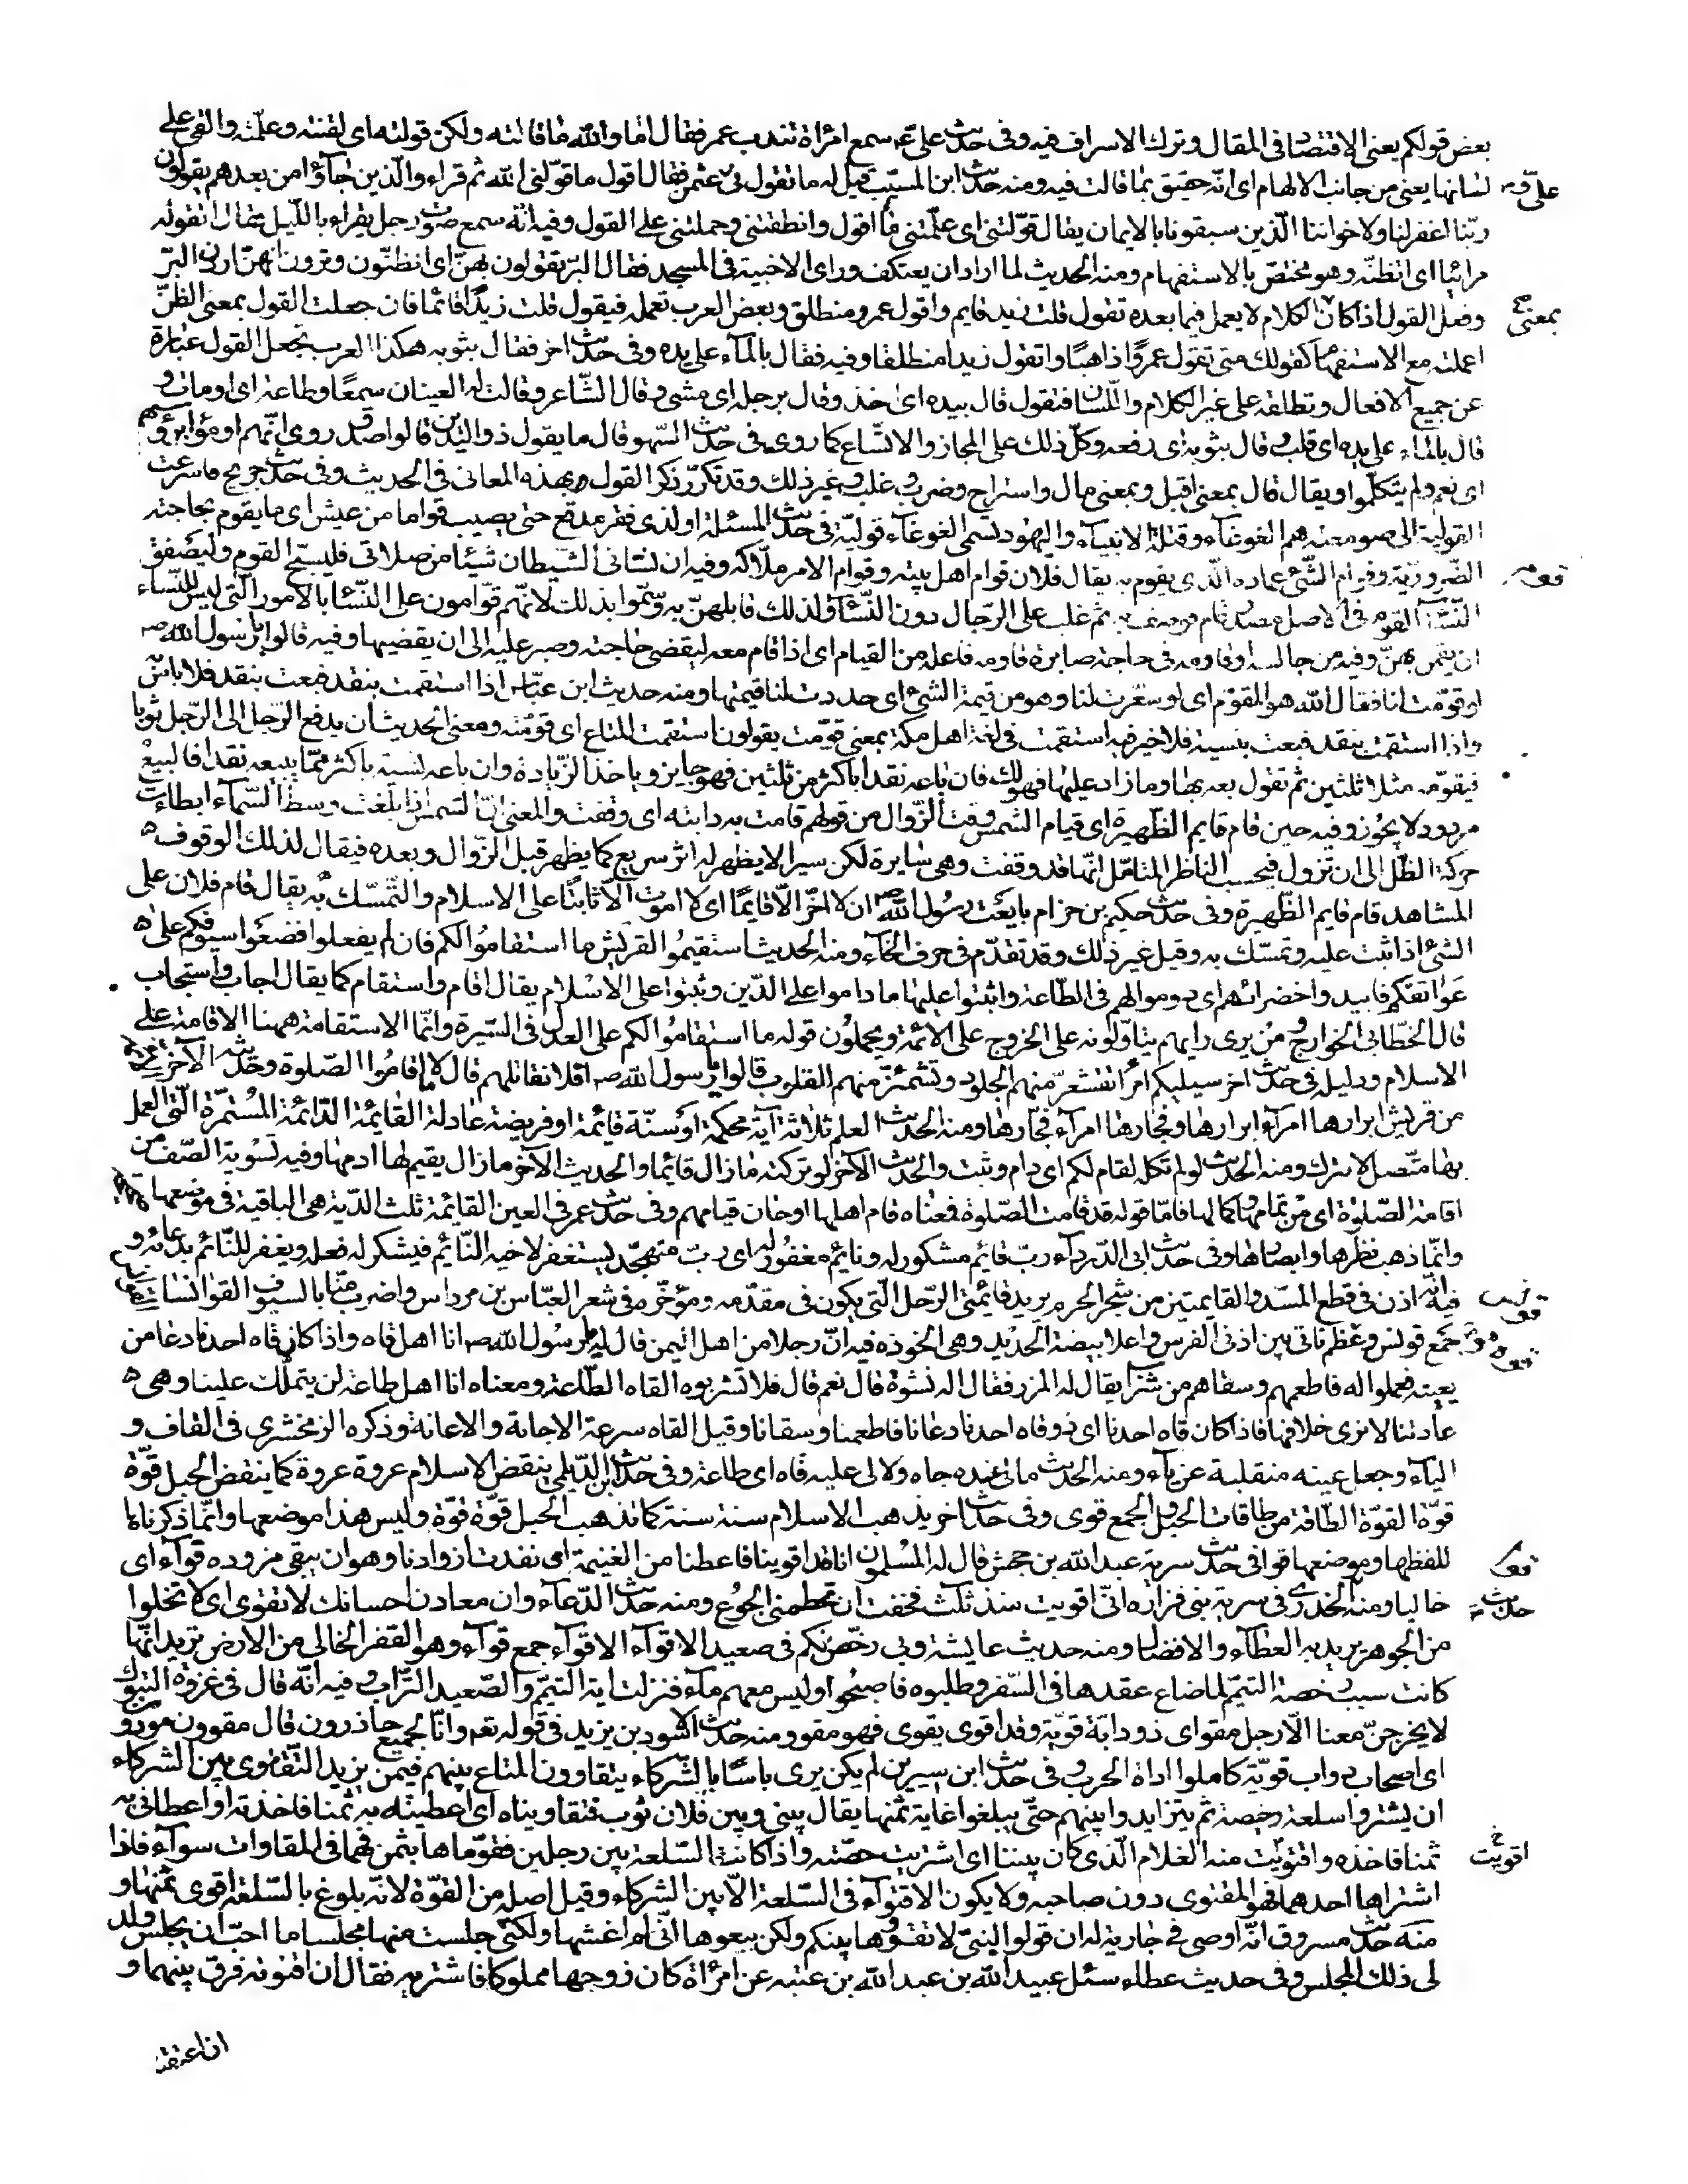 بعض قولكم يعنى الاقتصا فى المقال وترك الاسراف فيه وفى حديث على ع سمع امرأة تندب عمر فقال اما والله ما قالته ولكن قولته اى لقنته وعلّمته والقى على
لسانها يعنى من جانب الالهام اى انّه حقيق بما قالت فيه ومنه حديث ابن المسيّب قيل له ما تقول فى عثمن فقال اقول ما قوّلنى الله ثم قراء والّذين جاؤا من بعدهم يقولون
ربّنا اغفر لنا ولاخواننا الّذين سبقونا بالايمان يقال قوّلتنى اى علّمتنى ما اقول وانطقتنى وحملتنى على القول وفيه انّه سمع صوت رجل يقراء بالليل فقال اتقوله
مرائيا اى اتظنّه وهو مختصّ بالاستفهام ومنه الحديث لما اراد ان يعتكف وراى الاخبية فى المسجد فقال البرّ تقولون بهنّ اى اتظنّون وترون انّهنّ اردن البرّ
وفعل القول اذا كان الكلام لا يعمل فيما بعده تقول قلت زيد قايم واقول عمرو منطلق وبعض العرب تعمله فيقول قلت زيدًا قائما فان جعلت القول بمعنى الظنّ
اعملته مع الاستفها كقولك متى تقول عمرًوا ذاهبًا واتقول زيدا منطلقا وفيه فقال بالمآء على يده وفى حديث اخر فقال بثوبه هكذا العرب تجعل القول عبارة
عن جميع الافعال وتطلقه على غير الكلام واللّسان فتقول قال بيده اى اخذ وقال برجله اى مشى وقال الشّاعر وقالت له العينان سمعًا وطاعة اى اومات و
قال بالماء على يده اى قلب وقال بثوبه اى رفعه وكلّ ذلك على المجاز والاتّساع كما روى فى حديث السّهو قال ما يقول ذو اليدين قالوا صدق روى انّهم اومؤا برؤسهم
اى نعم ولم يتكلّموا ويقال قال بمعنى اقبل وبمعنى مال واستراح وضرب وغلب وغير ذلك وقد تكرّر ذكر القول بهذه المعانى فى الحديث وفى حديث جريج فاسرعت
القولية الى صومعته هم الغوغآء وقتلة الانبياء واليهود تسمى الغوغآء قوليّة فى حديث المسئلة او لذى فقر مدقع حتى يصيب قواما من عيش اى ما يقوم بحاجته
الضّروريّة وقوام الشّئ عماده الّذى يقوم به يقال فلان قوام اهل بيته وقوام الامر ملاكه وفيه ان نسّانى الشّيطان شيئا من صلاتى فليسبّح القوم وليصفق
النّسآ القوم فى الاصل مصدر قام فوصف به ثم غلب على الرّجال دون النّسآء ولذلك قابلهنّ به وسمّوا بذلك لانّهم قوّامون على النّسا بالامور الّتى ليس للنّساء
ان يقمن بهنّ وفيه من جالسه او قاومه فى حاجة صابره قاومه فاعله من القيام اى اذا قام معه ليقضى حاجته وصبر عليه الى ان يقضيها وفيه قالوا يا رسول الله ص
لو قوّمت لنا فقال الله هو المقوّم اى لو سعّرت لنا وهو من قيمة الشئ اى حددت لنا قيمتها ومنه حديث ابن عبّاس اذا استقمت بنقد فبعت بنقد فلا باس به
واذا استقمت بنقد فبعت بنسية فلا خير فيه استقمت فى لغة اهل مكة بمعنى قوّمت يقولون استقمت المتاع اى قوّمته ومعنى الحديث ان يدفع الرّجل الى الرّجل ثوبا
فيقوّمه مثلا ثلثين ثم تقول بعه بها وما زاد عليها فهو لك فان باعه نقدا باكثر من ثلثين فهو جايز وياخذ الزّيادة وان باعه نسية باكثر ممّا يبيعه نقدا فالبيع
مردود لا يجوز وفيه حين قام قايم الظّهيرة اى قيام الشمس وقت الزّوال من قولهم قامت به دابته اى وقفت والمعنى انّ الشمس اذا بلغت وسط السّمآء ابطاءت
حركة الظّل الى ان تزول فيحسب الناظر المتامّل انّها قد وقفت وهى سايرة لكن سيرا لا يظهر له اثر سريع كما يظهر قبل الزّوال وبعده فيقال لذلك الوقوف
المشاهد قام قايم الظّهيرة وفى حديث حكيم بن حزام بايعت رسول الله ص ان لا اخرّ الّا قايمًا اى لا اموت الّا ثابتًا على الاسلام والتّمسّك به يقال قام فلان على
الشئ اذا ثبت عليه وتمسّك به وقيل غير ذلك وقد تقدّم فى حرف الخآء ومنه الحديث استقيموا لقريش ما استقاموا لكم فان لم يفعلوا فضعوا سيوفكم على
عواتقكم فابيدوا خضرائهم اى دوموا لهم فى الطّاعة واثبتوا عليها ما داموا على الدّين وثبتوا على الاسلام يقال اقام واستقام كما يقال اجاب واستجاب
قال الخطّابى الخوارج ومن يرى رايهم يتاوّلونه على الخروج على الائمّة ويحملون قوله ما استقاموا لكم على العدل فى السّيرة وانّما الاستقامة ههنا الاقامة على
الاسلام ودليله فى حديث اخر سيليكم امرآ تقشعرّ منهم الجلود وتشمئزّ منهم القلوب قالوا يا رسول الله ص افلا نقاتلهم قال لا ما اقاموا الصّلوة وحديثه الآخر
من قريش ابرارها امرآء ابرارها وفجّارها امرآء فجّارها ومنه الحديث العلم ثلاثة آية محكمة او سنّة قائمة او فريضة عادلة القائمة الدّائمة المستمرّة الّتى العمل
بها متّصل لا يترك ومنه الحديث لو لم تكله لقام لكم اى دام وثبت والحديث الآخر لو تركته ما زال قائما والحديث الآخر ما زال يقيم لها ادمها وفيه تسوية الصّفّ من
اقامة الصّلوة اى من تمامها وكمالها فامّا قوله قد قامت الصّلوة فمعناه قام اهلها او حان قيامهم وفى حديث عمر فى العين القايمة ثلث الدّية هى الباقية فى موضعها
وانّما ذهب نظرها وابصارها وفى حديث ابى الدّردآء ربّ قائم مشكور له ونايم مغفور له اى ربّ متهجّد يستغفر لاخيه النّائم فيشكر له فعله ويغفر للنّائم بدعائه و
فيه انّه اذن فى قطع المسد والقايمتين من شجر الحرم يريد قائمتى الرّحل الّتى يكون فى مقدّمه ومؤخّره فى شعر العبّاس بن مرداس واضرب منّا بالسيوف القوانسا
جمع قونس وعظم ناتى بين اذنى الفرس واعلا بيضة الحديد وهى الخوذه فيه انّ رجلا من اهل اليمن قال يا رسول الله ص انا اهل قاه واذا كان قاه احدنا دعا من
يعينه فعملوا له فاطعمهم وسقاهم من شراب يقال له المزر فقال اله نشوة قال نعم قال فلا تشربوه القاه الطّاعة ومعناه انا اهل طاعة لن يتملّك علينا وهى
عادتنا لا نرى خلافها فاذا كان قاه احدنا اى ذو قاه احدنا دعانا فاطعمنا وسقانا وقيل القاه سرعة الاجابة والاعانة وذكره الزمخشرى فى القاف و
اليآء وجعل عينه منقلبة عن يآء ومنه الحديث مالى عنده جاه ولا لى عليه قاه اى طاعة وفى حديث ابن الدّيلمى ينقض الاسلام عروة عروة كما ينقض الحبل قوّة
قوّة القوّة الطّاقة من طاقات الحبل والجمع قوى وفى حديث اخر يذهب الاسلام سنة سنة كما تذهب الحبل قوّة قوّة وليس هذا موضعها وانّما ذكرناها
للفظها وموضعها قوا فى حديث سرية عبد الله بن جحش قال له المسلمون انا قد اقوينا فاعطنا من الغنيمة اى نفدت ازوادنا وهو ان يبقى مزوده قوآء اى
خاليا ومنه الخدرى فى سرية بنى فزاره انّى اقويت منذ ثلث فخفت ان تحطمنى الجوع ومنه حديث الدّعآء وان معادن احسانك لا تقوى اى لا تخلوا
من الجوهر يريد به العطآء والافضال ومنه حديث عايشة وبى رخّص لكم فى صعيد الاقوآء الاقوآء جمع قوآء وهو القفر الخالى من الارض تريد انّها
كانت سبب رخصة التيمّم لما ضاع عقدها فى السّفر وطلبوه فاصبحوا وليس معهم مآء فنزلت اية التيمّم والصّعيد التّراب وفيه انّه قال فى غزوة التبوك
لا يخرجنّ معنا الّا رجل مقو اى ذو دابّة قويّة وقد اقوى يقوى فهو مقو ومنه حديث الاسود بن يزيد فى قوله تعم وانّا لجميع حاذرون قال مقوون مودو
اى اصحاب دواب قويّة كاملوا اداة الحرب وفى حديث ابن سيرين لم يكن يرى باسًا بالشّركاء يتقاوون المتاع بينهم فيمن يزيد التّقاوى بين الشركاء
ان يشتروا سلعة رخيصة ثم يتزايدوا بينهم حتّى يبلغوا غاية ثمنها يقال بينى وبين فلان ثوب فتقاويناه اى اعطيته به ثمنا فاخذته او اعطانى به
ثمنا فاخذه واقتويت منه الغلام الّذى كان بيننا اى اشتريت حصّته واذا كانت السّلعة بين رجلين فقوّماها بثمن فهما فى المقاوات سوآء فاذا
اشتراها احدهما فهو المقتوى دون صاحبه ولا يكون الاقتوآء فى السّلعة الّا بين الشركاء وقيل اصله من القوّة لانّه بلوغ بالسّلعة اقوى ثمنها و
منه حديث مسروق انّه اوصى فى جارية له ان قولوا لبنىّ لا تقتووها بينكم ولكن بيعوها انّى لم اغشها ولكنّى جلست منها مجلسا ما احبّ ان يجلس ولد
لى ذلك المجلس وفى حديث عطاء سئل عبيد الله بن عبد الله بن عتبه عن امرأة كان زوجها مملوكا فاشتريه فقال ان اقتوته فرق بينهما و
ان اعتقته
بمعنى
قوم
حديث
اقويت